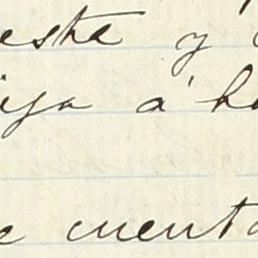 este y
ija á ha
e cuenta